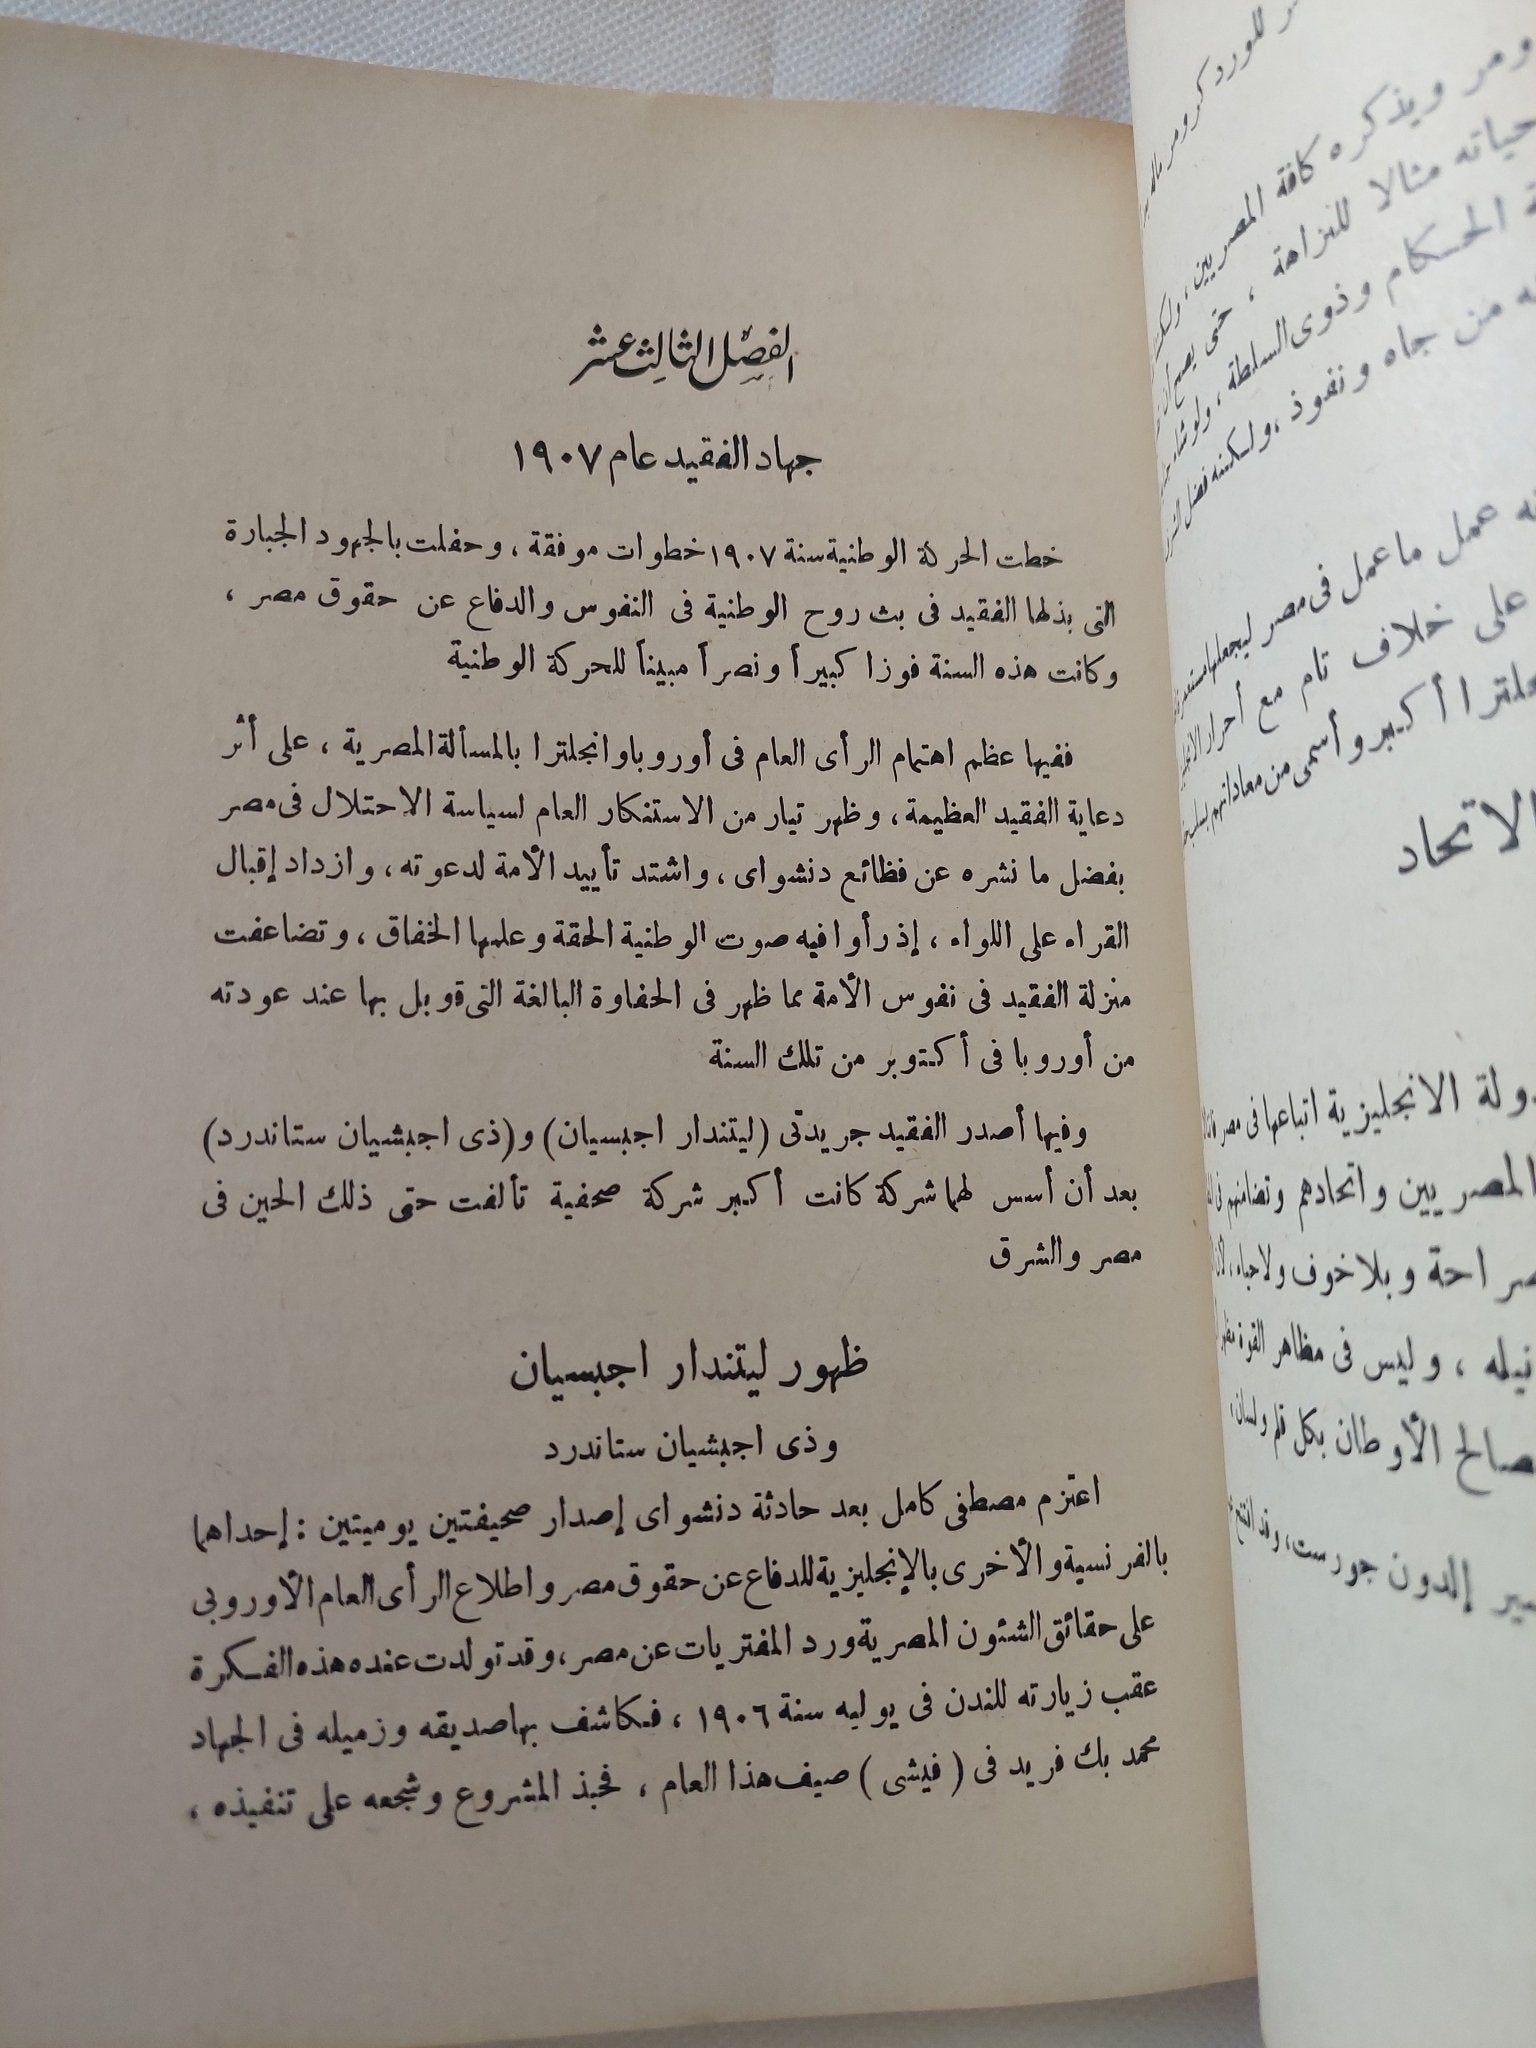 الفصل الثالث عشر
جهاد الفقيد عام ١٩٠٧
خطت الحركة الوطنية سنة ١٩٠٧ خطوات موفقة ، وحفلت بالجهود الجبارة
التى بذلها الفقيد فى بث روح الوطنية فى النفوس والدفاع عن حقوق مصر ،
وكانت هذه السنة فوزا كبيراً ونصراً مبيناً للحركة الوطنية
ففيها عظم اهتمام الرأى العام فى أوروبا وانجلترا بالمسألة المصرية ، على أثر
دعاية الفقيد العظيمة ، وظهر تيار من الاستنكار العام لسياسة الاحتلال فى مصر
بفضل ما نشره عن فظائع دنشواى ، واشتد تأييد الأمة لدعوته ، وازداد إقبال
القراء على اللواء ، إذ رأوا فيه صوت الوطنية الحقة وعلمها الخفاق ، وتضاعفت
منزلة الفقيد فى نفوس الأمة مما ظهر فى الحفاوة البالغة التى قوبل بها عند عودته
من أوروبا فى أكتوبر من تلك السنة
وفيها أصدر الفقيد جريدتى (ليتندار اجبسيان) و(ذى اجبشيان ستاندرد)
بعد أن أسس لهما شركة كانت أكبر شركة صحفية تألفت حتى ذلك الحين فى
مصر والشرق
ظهور ليتندار اجبسيان
وذى اجبشيان ستاندرد
اعتزم مصطفى كامل بعد حادثة دنشواى إصدار صحيفتين يوميتين : إحداهما
بالفرنسية والأخرى بالإنجليزية للدفاع عن حقوق مصر واطلاع الرأى العام الأوروبى
على حقائق الشئون المصرية ورد المفتريات عن مصر ، وقد تولدت عنده هذه الفكرة
عقب زيارته للندن فى يوليه سنة ١٩٠٦ ، فكاشف بها صديقه وزميله فى الجهاد
محمد بك فريد فى ( فيشى ) صيف هذا العام ، فحبذ المشروع وشجعه على تنفيذه ،
للورد كرومر
ومر ويذكره كافة المصريين ، ولكنه
حياته مثالا للنزاهة ، حتى يصح أن
الحكام وذوى السلطة ، ولو شاء
من جاه ونفوذ ، ولكنه فضل
عمل ما عمل فى مصر ليجعلها مستعمرة
على خلاف تام مع أحرار
أكبر وأسمى من معاداتهم
الاتحاد
ولة الانجليزية اتباعها فى مصر
المصريين واتحادهم وتضامنهم
صراحة وبلا خوف ولا حياء ،
نيله ، وليس فى مظاهر القوة
صالح الأوطان بكل قلم ولسان ،
إلدون جورست ، وقد افتتح